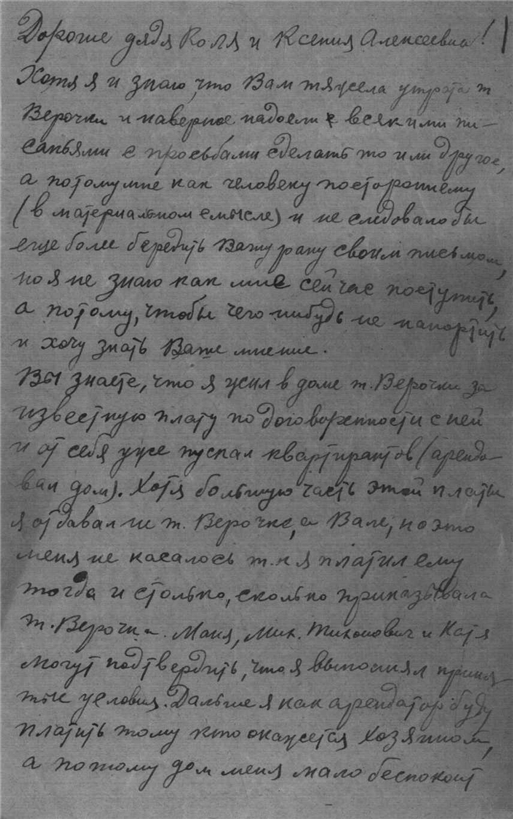 Дорогие дядя Коля и Ксения Алексеевна!
Хотя я и знаю, что Вам тяжела утрата т.
Верочки и наверное надоели с всякими пи-
саньями с просьбами сделать то или другое,
а потому мне как человеку постороннему
(в материальном смысле) и не следовало бы
еще более бередить Вашу рану своим письмом,
но я не знаю как мне сейчас поступить,
а потому, чтобы чего нибудь не напортить
и хочу знать Ваше мнение.
Вы знаете, что я жил в доме т. Верочки за
известную плату по договоренности с ней
и от себя уже пускал квартирантов (арендо-
вал дом). Хотя большую часть этой платы
я отдавал не т. Верочке, а Вале, но это
меня не касалось т.к я платил ему
тогда и столько, сколько приказывала
т. Верочка. Маня, Мих. Тихонович и Катя
могут подтвердить, что я выполнял приня-
тые условия. Дальше я как арендатор буду
платить тому кто окажется хозяином,
а потому дом меня мало беспокоит